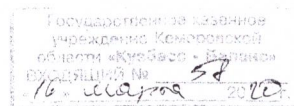 Государственное казённое
учреждение Кемеровской
области «Кузбасс -
ВХОДЯЩИЙ № 58
« 16 » марта 2020 г.